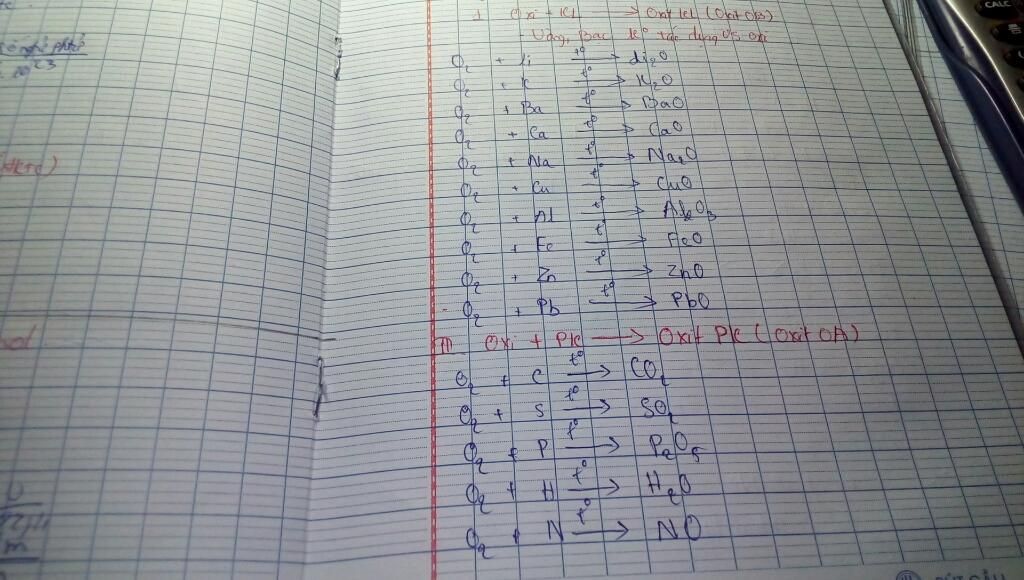 Oxi + KL → Oxit KL (Oxit OB)
- Vàng, Bạc ko tác dụng vs oxi
O2 + Li t° → Li2O
O2 + K t° → K2O
O2 + Ba t° → BaO
O2 + Ca t° → CaO
O2 + Na t° → Na2O
O2 + Cu t° → CuO
O2 + Al t° → Al2O3
O2 + Fe t° → FeO
O2 + Zn t° → ZnO
O2 + Pb t° → PbO
Oxi + PK → Oxit PK (Oxit OA)
O2 + C t° → CO2
O2 + S t° → SO2
O2 + P t° → P2O5
O2 + H t° → H2O
O2 + N t° → NO